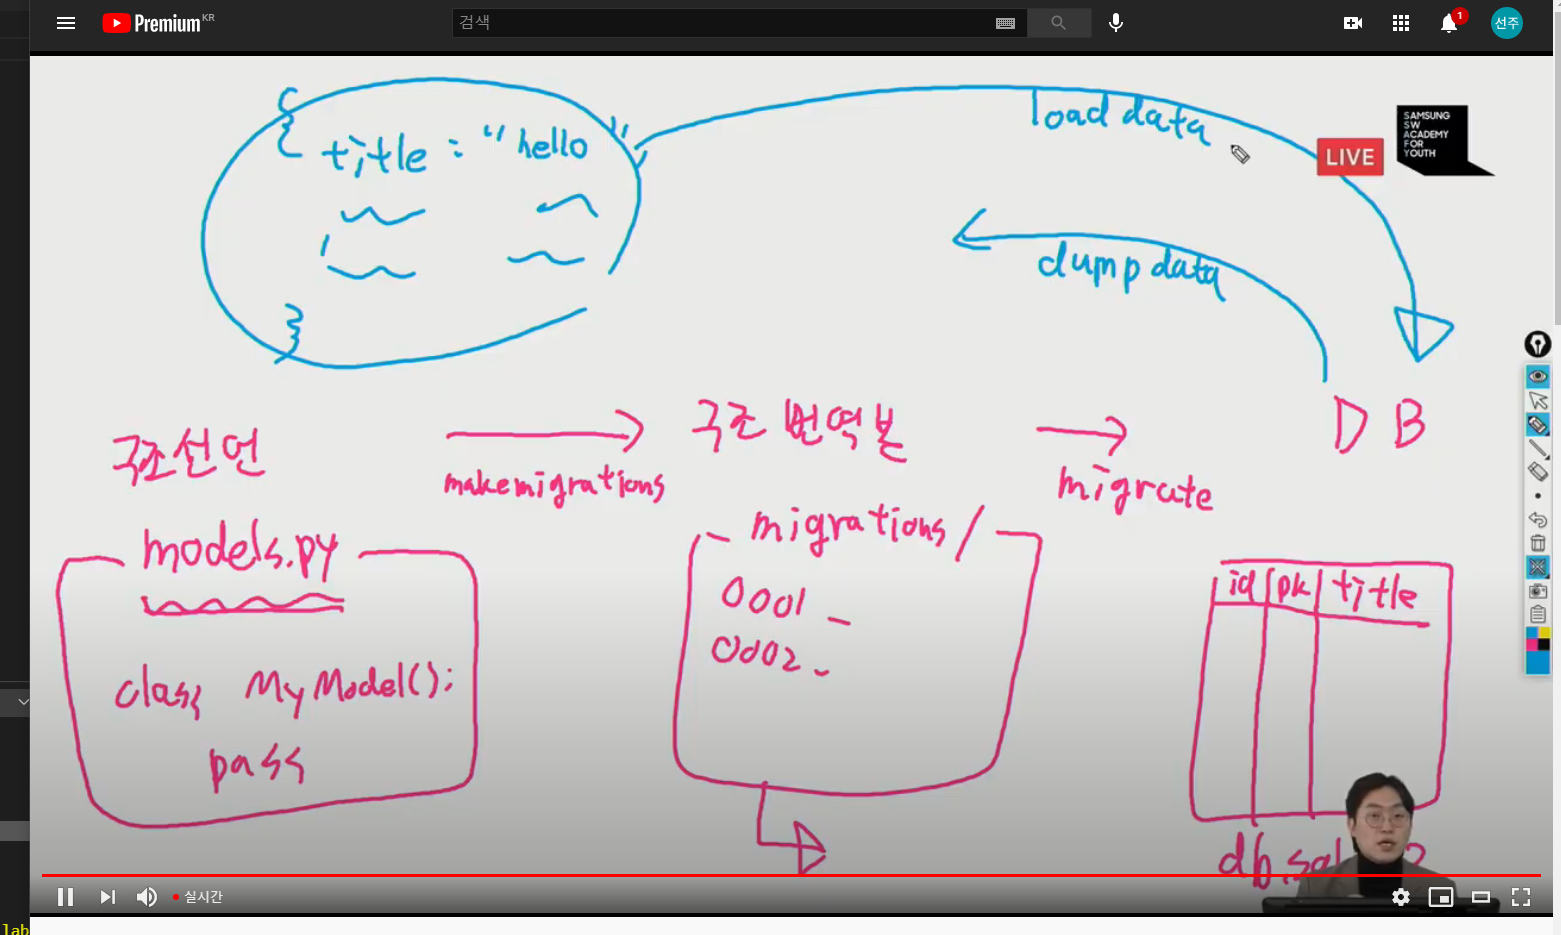 Premium KR
검색
1
선주
{
title : "hello"
}
load data
LIVE
SAMSUNG
SW
ACADEMY
FOR
YOUTH
dumpdata
구조선언
makemigrations
구조 번역본
migrate
DB
models.py
class MyModel():
pass
migrations/
0001_
0002_
id pk title
실시간
lab